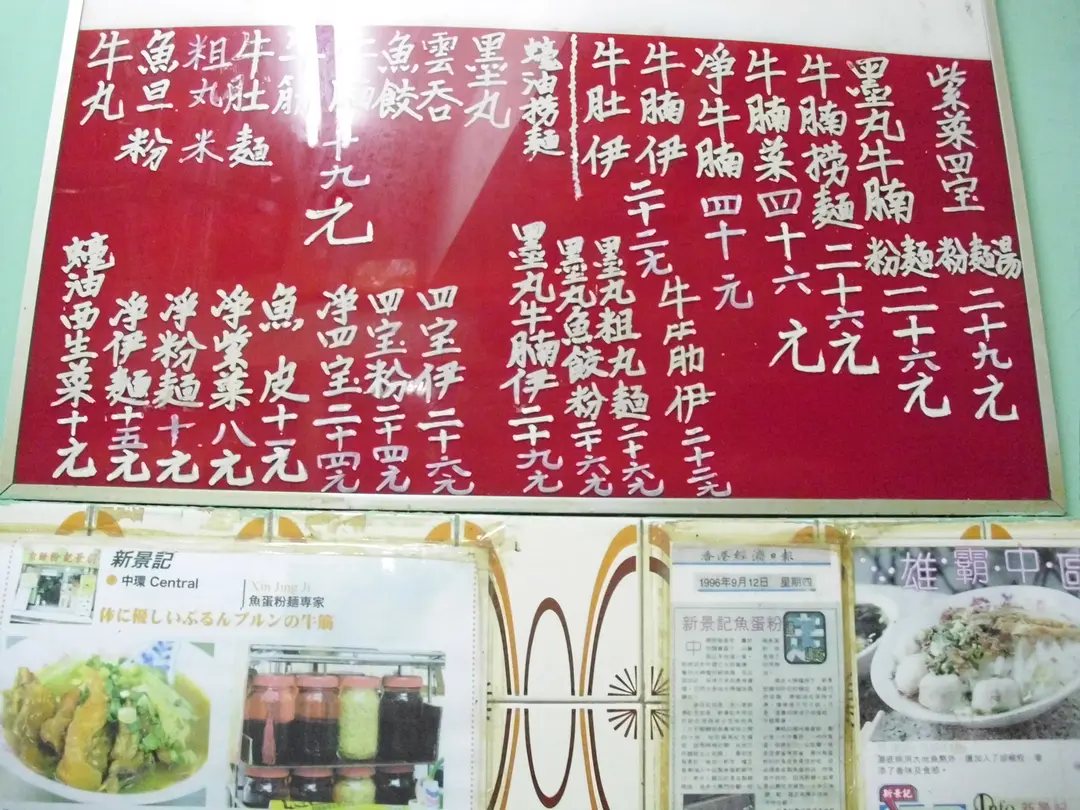 紫菜四宝粉麵湯二十九元
墨丸牛腩粉麵二十六元
牛腩捞麵二十六元
牛腩菜四十六元
净牛腩四十元
牛腩伊
牛肚伊
二十二元
牛筋伊二十二元
蠔油捞麵
墨丸
雲吞
魚餃
牛腩
牛筋
牛肚
粗丸
魚旦
牛丸
粉
米
麵
十九元
墨丸粗丸麵二十六元
墨丸魚餃粉二十六元
墨丸牛腩伊二十九元
四宝伊二十六元
四宝粉二十四元
净四宝二十四元
魚皮十二元
净紫菜八元
净粉麵十元
净伊麵十五元
蠔油西生菜十元
新景記
中環 Central
Xin Jing Ji
魚蛋粉麵專家
体に優しいぷるんプルンの牛筋
香港經濟日報
1996年9月12日 星期四
新景記魚蛋粉
雄霸中區
新景記